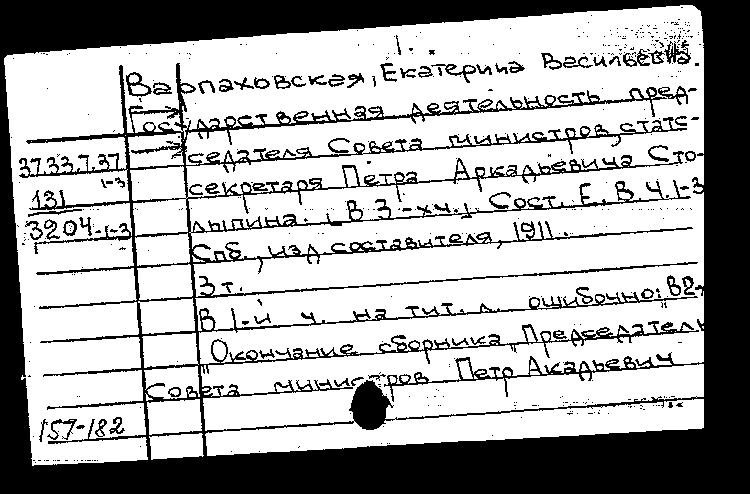 1.
Варпаховская, Екатерина Васильевна.
Государственная деятельность пред-
37.33.7.37 седателя Совета министров, статс-
131 1-3 секретаря Петра Аркадьевича Сто-
3204-1-3 лыпина. [В 3-х ч.]. Сост. Е. В. Ч. 1-3
Спб., изд. составителя, 1911.
3 т.
В 1-й ч. на тит. л. ошибочно: В 2-
"Окончание сборника "Председатель
Совета министров Петр Акадьевич
157-182